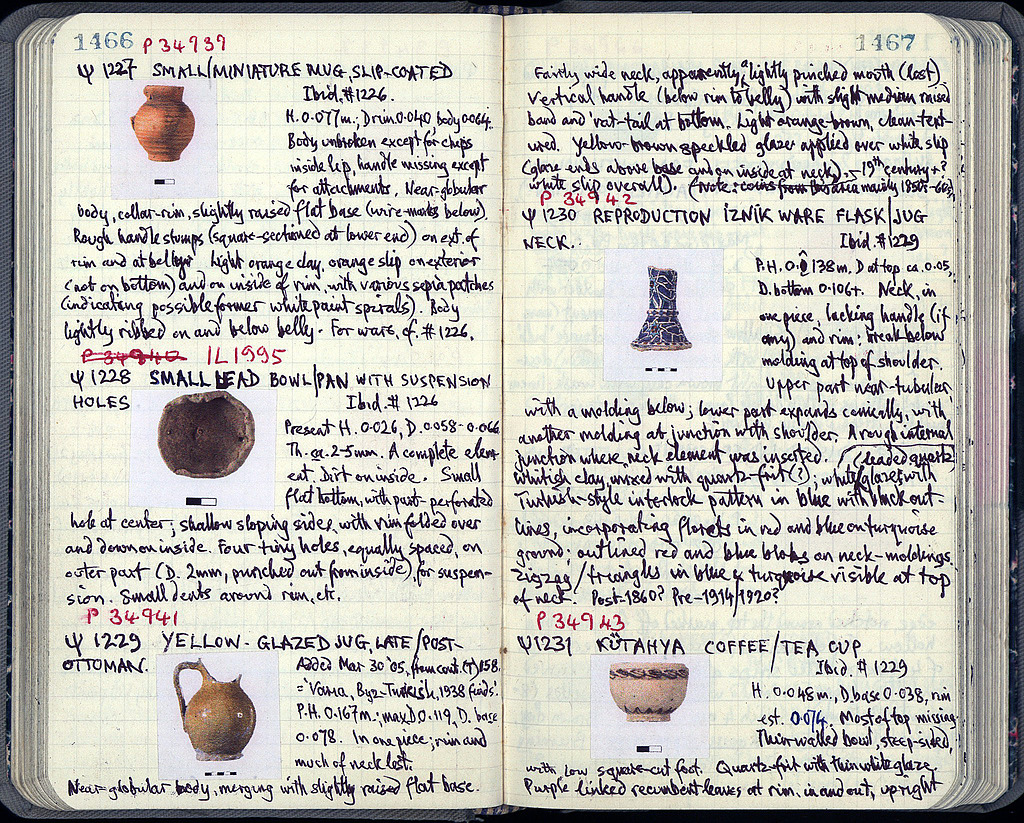 1466 P 34939
Ψ 1227 SMALL/MINIATURE MUG, SLIP-COATED
Ibid. #1226.
H. 0.077m.; D rim 0.040 body 0.064.
Body unbroken except for chips
inside lip, handle missing except
for attachments. Near-globular
body, collar-rim, slightly raised flat base (wire-marks below).
Rough handle stumps (square-sectioned at lower end) on ext. of
rim and at belly. Light orange clay, orange slip on exterior
(not on bottom) and on inside of rim, with various sepia patches
(indicating possible former white paint spirals). Body
lightly ribbed on and below belly. For ware, cf. #1226.
P 34940 IL1995
Ψ 1228 SMALL LEAD BOWL/PAN WITH SUSPENSION
HOLES Ibid. # 1226
Present H. 0.026, D. 0.058-0.066
Th. ca. 2-5mm. A complete elem-
ent. Dirt on inside. Small
flat bottom, with part-perforated
hole at center; shallow sloping sides, with rim folded over
and down on inside. Four tiny holes, equally spaced, on
outer part (D. 2mm, punched out from inside), for suspen-
sion. Small dents around rim, etc.
P 34941
Ψ 1229 YELLOW-GLAZED JUG, LATE/POST-
OTTOMAN. Added Mar 30 '05, from cont. 858.
= 'Varia, Byz-Turkish, 1938 finds'.
P.H. 0.167m.; max D 0.119, D. base
0.078. In one piece; rim and
much of neck lost.
Near-globular body, merging with slightly raised flat base.
1467
Fairly wide neck, apparently a lightly pinched mouth (lost)
Vertical handle (below rim to belly) with slight median raised
band and 'rat-tail at bottom. Light orange-brown, clean-text-
ured. Yellow-brown speckled glaze applied over white slip
(glaze ends above base and on inside at neck). - 19th century+?
white slip overall). (note: coins from area mainly 1850s-60s)
P 34942
Ψ 1230 REPRODUCTION İZNİK WARE FLASK/JUG
NECK. Ibid. # 1229
P.H. 0.138m. D at top ca. 0.05,
D. bottom 0.106+. Neck, in
one piece, lacking handle (if
any) and rim: break below
molding at top of shoulder.
Upper part near-tubular,
with a molding below; lower part expands conically, with
another molding at junction with shoulder. A rough internal
junction where neck element was inserted. (leaded quartz)
Whitish clay, mixed with quartz-frit (?); white glaze, with
Turkish-style interlock pattern in blue with black out-
lines, incorporating florets in red and blue on turquoise
ground; outlined red and blue blobs on neck-moldings.
Zigzag/triangles in blue & turquoise visible at top
of neck. Post-1860? Pre-1914/1920?
P 34943
Ψ 1231 KÜTAHYA COFFEE/TEA CUP
Ibid. # 1229
H. 0.048m., D. base 0.038, rim
est. 0.074. Most of top missing.
Thin-walled bowl, steep-sided,
with low square-cut foot. Quartz-frit with thin white glaze.
Purple linked recumbent leaves at rim, in and out, upright